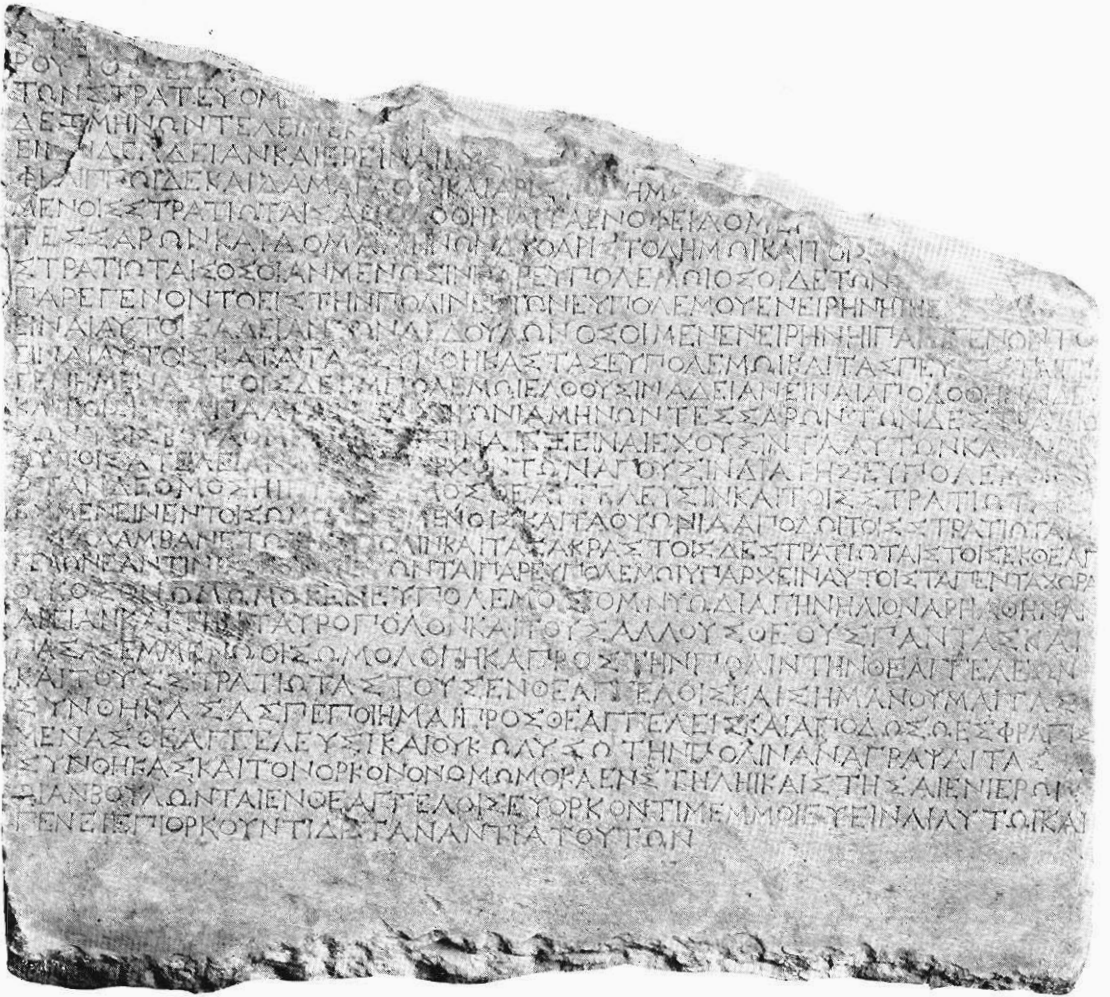 ΡΟΥΤΟ
ΤΩΝΣΤΡΑΤΕΥΟΜ
ΔΕΞΜΗΝΩΝΤΕΛΕΙ
ΕΙΝ ΔΕΑΔΕΙΑΝΚΑΙΕΡΕΙΝΑΙ
ΦΙΛΙΠΠΩΙΔΕΚΑΙΔΑΜΑΓΑΘΩΙΚΑΙΑΡΙΣ ΗΜ
ΜΕΝΟΙΣΣΤΡΑΤΙΩΤΑΙΣΑΠΟΔΟΘΗΝΑΙΤΑΕΝΟΦΕΙΛΟΜΕ
ΤΕΣΣΑΡΩΝΚΑΙ ΔΟΜΑ ΜΗΝΩΝΔΥΟΑΡΙΣΤΟΔΗΜΩΙΚΑΙΤΟΙΣ
ΣΤΡΑΤΙΩΤΑΙΣΟΣΟΙΑΝΜΕΝΩΣΙΝΠΑΡΕΥΠΟΛΕΜΩΙΟΣΟΙΔΕΤΩΝ
ΠΑΡΕΓΕΝΟΝΤΟΕΙΣΤΗΝΠΟΛΙΝΕΚΤΩΝΕΥΠΟΛΕΜΟΥΕΝΕΙΡΗΝΗΙΗΕ
ΕΙΝΑΙΑΥΤΟΙΣΑΔΕΙΑΝΤΩΝΔΕΔΟΥΛΩΝΟΣΟΙΜΕΝΕΝΕΙΡΗΝΗΙΠΑΡΕΓΕΝΟΝΤΟ
ΕΙΝΑΙΑΥΤΟΙΣΚΑΤΑΤΑΣΣΥΝΘΗΚΑΣΤΑΣΕΥΠΟΛΕΜΩΙΚΑΙΤΑΣΠΕΥΚΕΣΤΑΙΓΕ
ΓΕΝΗΜΕΝΑΣΤΟΙΣΔΕΕΜΠΟΛΕΜΩΙΕΛΘΟΥΣΙΝΑΔΕΙΑΝΕΙΝΑΙΑΠΟΔΟΘΗΝΑΙΔΕ
ΚΑΙΤΟΙΣΚΑΤΑΠΑΛ ΩΝΙΑΜΗΝΩΝΤΕΣΣΑΡΩΝΤΩΝΔΕΣΤΡΑΤΙΩ
ΕΞΕΙΝΑΙΕΧΟΥΣΙΝΤΑΑΥΤΩΝΚΑ
ΑΥΤΟΙΣΑΤΕΛΕΙΑΝ ΤΩΝΑΓΟΥΣΙΝΔΙΑΤΗΣΕΥΠΟΛΕΜ
ΟΤΑΝΔΕΟΜΟΣΗΙ ΟΣΘΕΑΓΓΕΛΕΥΣΙΝΚΑΙΤΟΙΣΣΤΡΑΤΙΩΤ
ΕΜΜΕΝΕΙΝΕΝΤΟΙΣΩΜ ΜΕΝΟΙΣΚΑΙΤΑΟΨΩΝΙΑΑΠΟΔΩΙΤΟΙΣΣΤΡΑΤΙΩΤΑΙ
ΠΑΡΑΛΑΜΒΑΝΕΤΩ ΠΟΛΙΝΚΑΙΤΑΣΑΚΡΑΣΤΟΙΣΔΕΣΤΡΑΤΙΩΤΑΙΣΤΟΙΣΕΚΘΕΑΓ
ΓΕΛΩΝΕΑΝΤΙΝΕΣ ΩΝΤΑΙΠΑΡΕΥΠΟΛΕΜΩΙΥΠΑΡΧΕΙΝΑΥΤΟΙΣΤΑΠΕΝΤΑΧΩΡΑ
ΟΡΚΟΣΟΝΩΜΟΣΕΝΕΥΠΟΛΕΜΟΣΟΜΝΥΩΔΙΑΓΗΝΗΛΙΟΝΑΡΗΑΘΗΝΑΝ
ΑΡΕΙΑΝΚΑΙΤΗΝΤΑΥΡΟΠΟΛΟΝΚΑΙΤΟΥΣΑΛΛΟΥΣΘΕΟΥΣΠΑΝΤΑΣΚΑΙ
ΠΑΣΑΣΕΜΜΕΝΩΟΙΣΩΜΟΛΟΓΗΚΑΠΡΟΣΤΗΝΠΟΛΙΝΤΗΝΘΕΑΓΓΕΛΕΩΝ
ΚΑΙΤΟΥΣΣΤΡΑΤΙΩΤΑΣΤΟΥΣΕΝΘΕΑΓΓΕΛΟΙΣΚΑΙΣΗΜΑΝΟΥΜΑΙΤΑΣ
ΣΥΝΘΗΚΑΣΑΣΠΕΠΟΙΗΜΑΙΠΡΟΣΘΕΑΓΓΕΛΕΙΣΚΑΙΑΠΟΔΩΣΩΕΣΦΡΑΓΙΣ
ΜΕΝΑΣΘΕΑΓΓΕΛΕΥΣΙΚΑΙΟΥΚΩΛΥΣΩΤΗΝΠΟΛΙΝΑΝΑΓΡΑΨΑΙΤΑΣ
ΣΥΝΘΗΚΑΣΚΑΙΤΟΝΟΡΚΟΝΟΝΟΜΩΜΟΚΑΕΝΣΤΗΛΗΙΚΑΙΣΤΗΣΑΙΕΝΙΕΡΩΙΩ
ΙΑΝΒΟΥΛΩΝΤΑΙΕΝΘΕΑΓΓΕΛΟΙΣΕΥΟΡΚΟΝΤΙΜΕΜΜΟΙΕΥΕΙΝΑΙΑΥΤΩΙΚΑΙ
ΓΕΝΕΙΕΠΙΟΡΚΟΥΝΤΙΔΕΤΑΝΑΝΤΙΑΤΟΥΤΩΝ